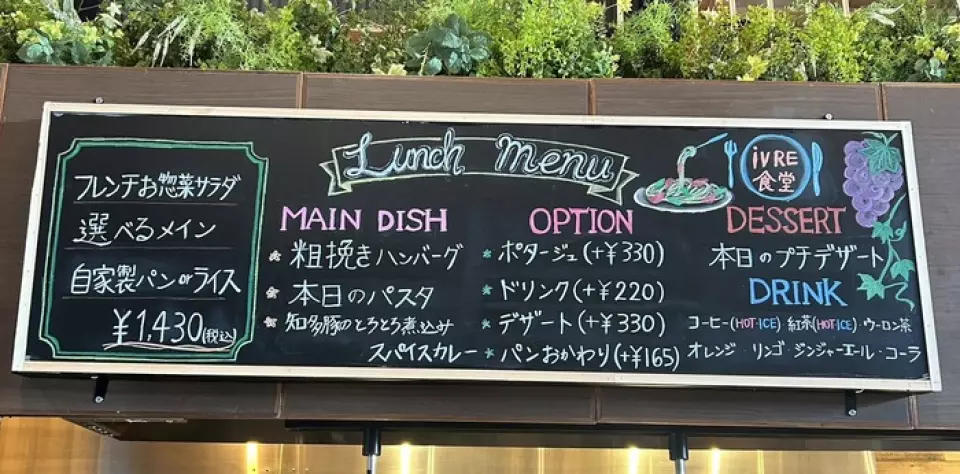 Lunch Menu
フレンチお惣菜サラダ
選べるメイン
自家製パンorライス
¥1,430(税込)
MAIN DISH
粗挽きハンバーグ
本日のパスタ
知多豚のとろとろ煮込み
スパイスカレー
OPTION
ポタージュ(+¥330)
ドリンク(+¥220)
デザート(+¥330)
パンおかわり(+¥165)
iVRE
食堂
DESSERT
本日のプチデザート
DRINK
コーヒー(HOT・ICE) 紅茶(HOT・ICE)・ウーロン茶
オレンジ・リンゴ・ジンジャーエール・コーラ